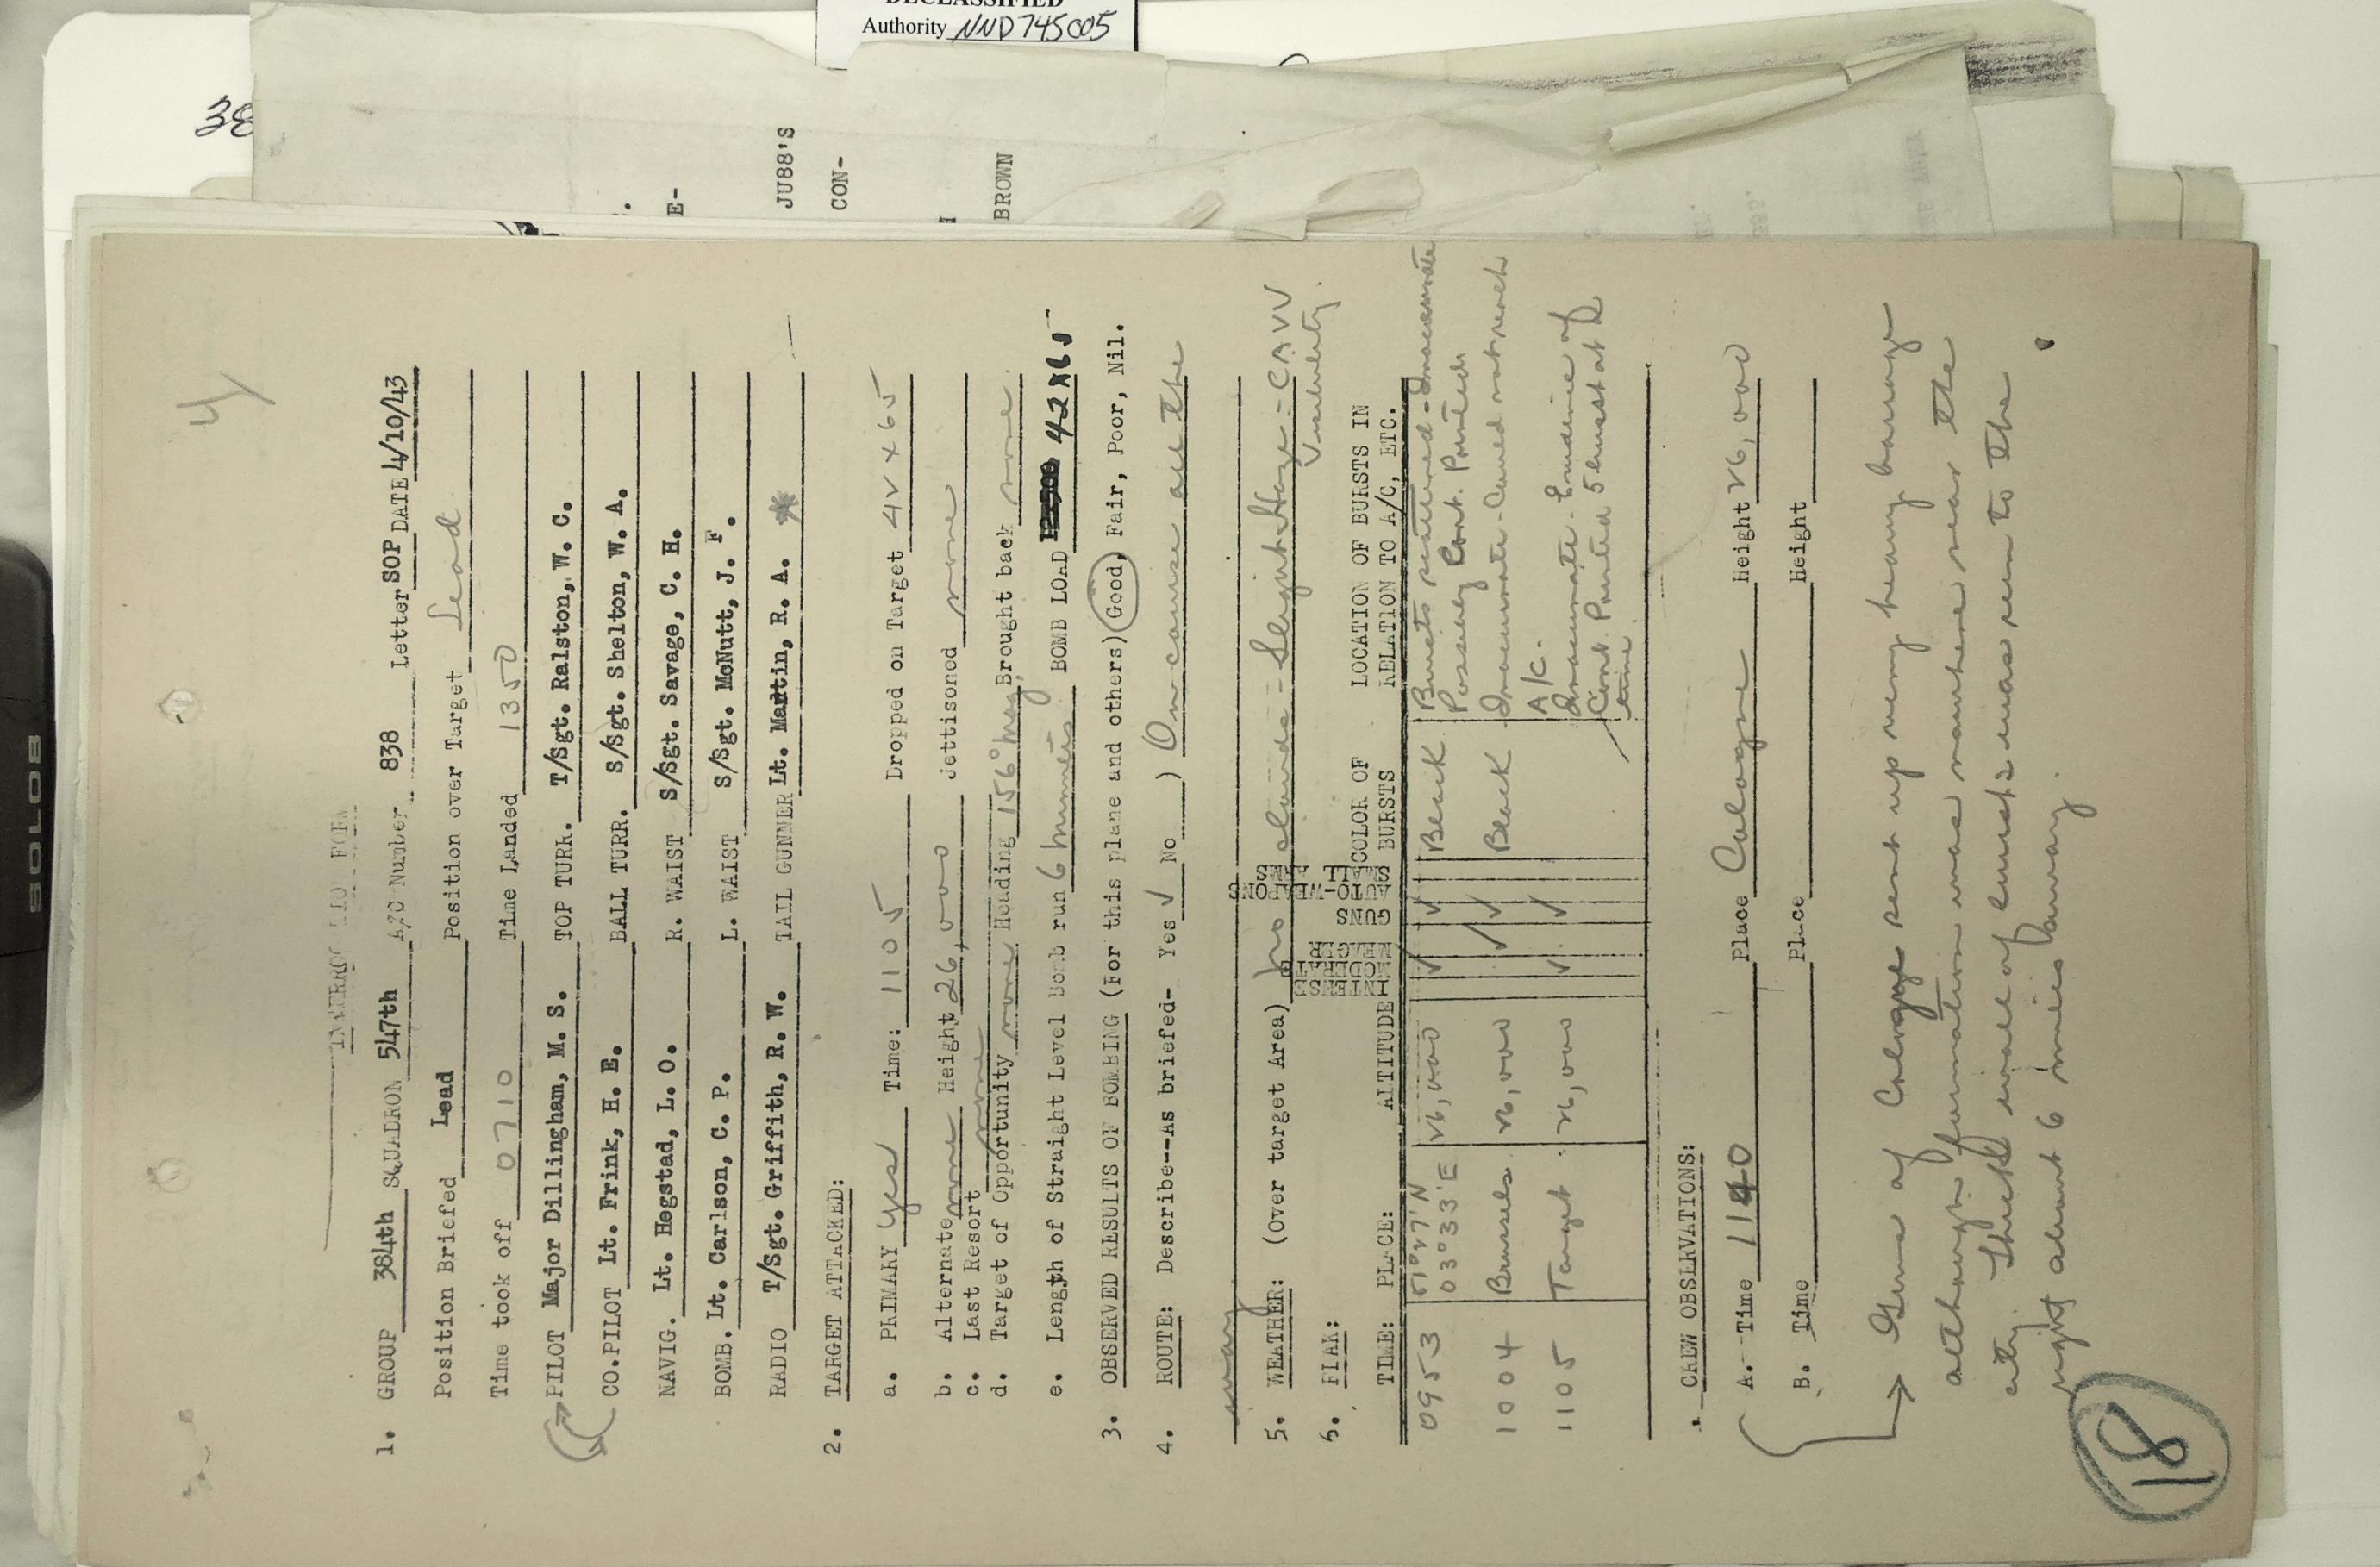 DECLASSIFIED
Authority NND 745005
38
JU88'S
CON-
E-
BROWN
4/
INTERROGATION FORM
1. GROUP 384th SQUADRON 547th A/C Number 838 Letter SOP DATE 4/10/43
Position Briefed Lead Position over Target Lead
Time took off 0710 Time Landed 1350
PILOT Major Dillingham, M. S. TOP TURR. T/Sgt. Ralston, W. C.
CO.PILOT Lt. Frink, H. E. BALL TURR. S/Sgt. Shelton, W. A.
NAVIG. Lt. Hegstad, L. O. R. WAIST S/Sgt. Savage, C. H.
BOMB. Lt. Carlson, C. P. L. WAIST S/Sgt. McNutt, J. F.
RADIO T/Sgt. Griffith, R. W. TAIL GUNNER Lt. Martin, R. A. *
2. TARGET ATTACKED:
a. PRIMARY yes Time: 1105 Dropped on Target 42 x 65
b. Alternate none Height 26,000 Jettisoned none
c. Last Resort none
d. Target of Opportunity none Heading 156° mag, Brought back none.
e. Length of Straight Level Bomb run 6 minutes BOMB LOAD 42 x 65
3. OBSERVED RESULTS OF BOMBING (For this plane and others) Good, Fair, Poor, Nil.
4. ROUTE: Describe--As briefed- Yes ✓ No ) On course all the
way
5. WEATHER: (Over target Area) No clouds - Slight Haze - CAVU
Visibility.
6. FLAK:
TIME: PLACE: ALTITUDE INTENSE MODERATE MEAGER GUNS AUTO-WEAPONS SMALL ARMS COLOR OF BURSTS LOCATION OF BURSTS IN RELATION TO A/C, ETC.
0953 51°27'N 03°33'E 26,000 ✓ ✓ Black Bursts scattered - Inaccurate
Possibly Cont. Pointed
1004 Brussels 26,000 ✓ ✓ Black Inaccurate - Could not reach
A/C.
1105 Target 26,000 ✓ ✓ Inaccurate - Evidence of
Cont. Pointed 5 bursts at a
time.
CREW OBSERVATIONS:
A. Time 1140 Place Cologne Height 26,000
B. Time Place Height
→ Guns of Cologne sent up very heavy barrage
although formation was nowhere near the
city. Thick wall of bursts was seen to the
right about 6 miles away.
18
SOLOB